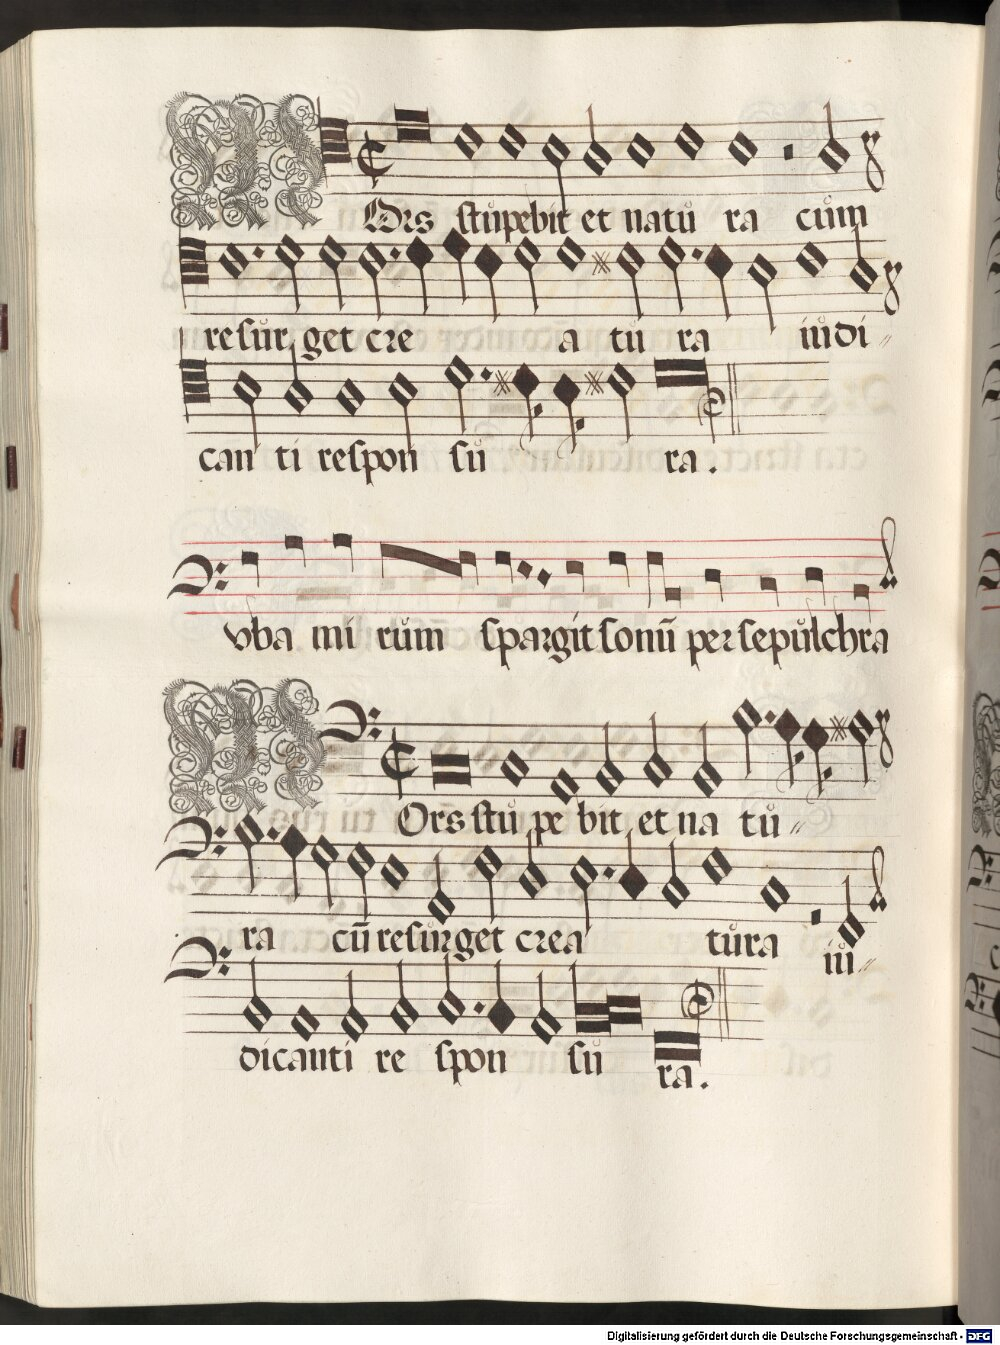 MOrs stůpebit et natů ra cům
resůr, get cre a tů ra iůdi
can ti respon sů ra.
vba mi růmm spargit sonū per sepůlchra
MOrs stů pe bit et na tů
ra cū resůrget crea tůra iů
dicanti re spon sů ra.
Digitalisierung gefördert durch die Deutsche Forschungsgemeinschaft - DFG